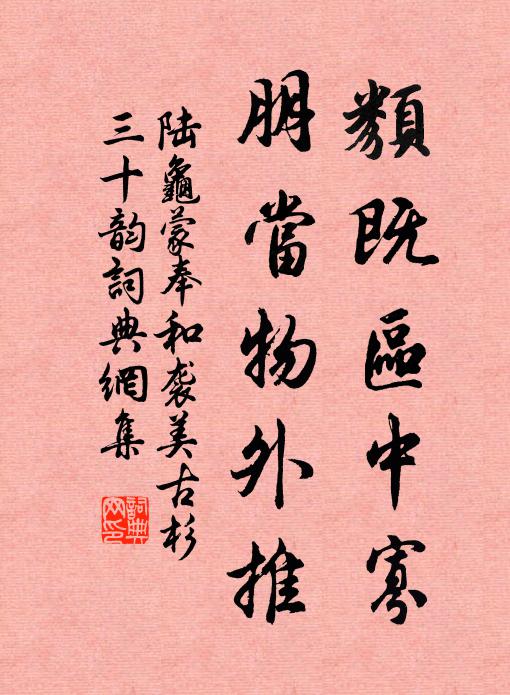 類既區中寡
朋當物外推
陆龜蒙奉和袭美古杉
三十韵詞典網集
詞典网印